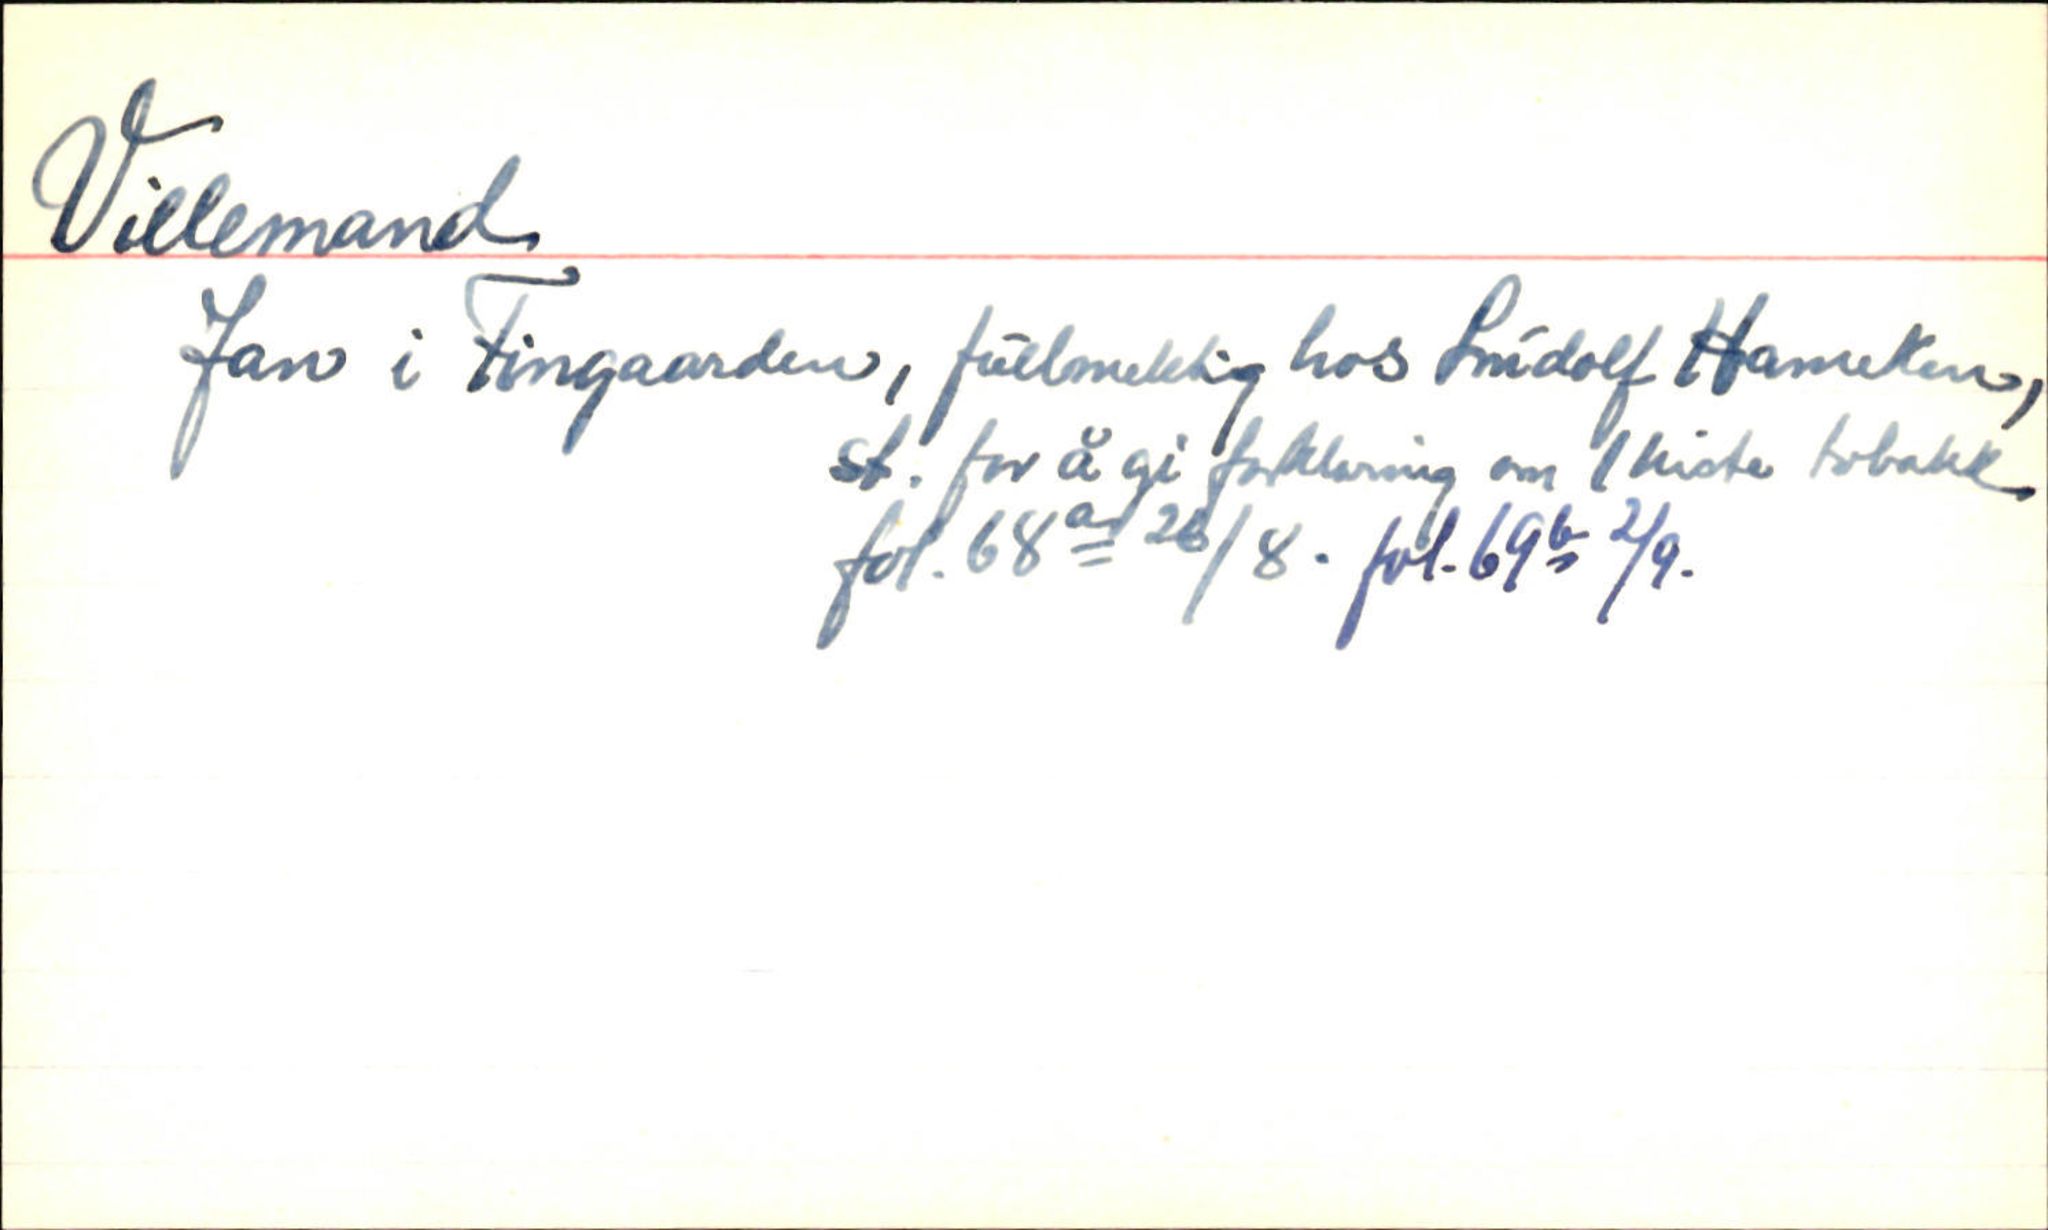 Villemand
Jan i Fingaarden, fullmektig hos Luidolf Hameken,
st. for å gi forklaring om 1 kiste tobakk
fol. 68a 26/8. fol. 69b 2/9.